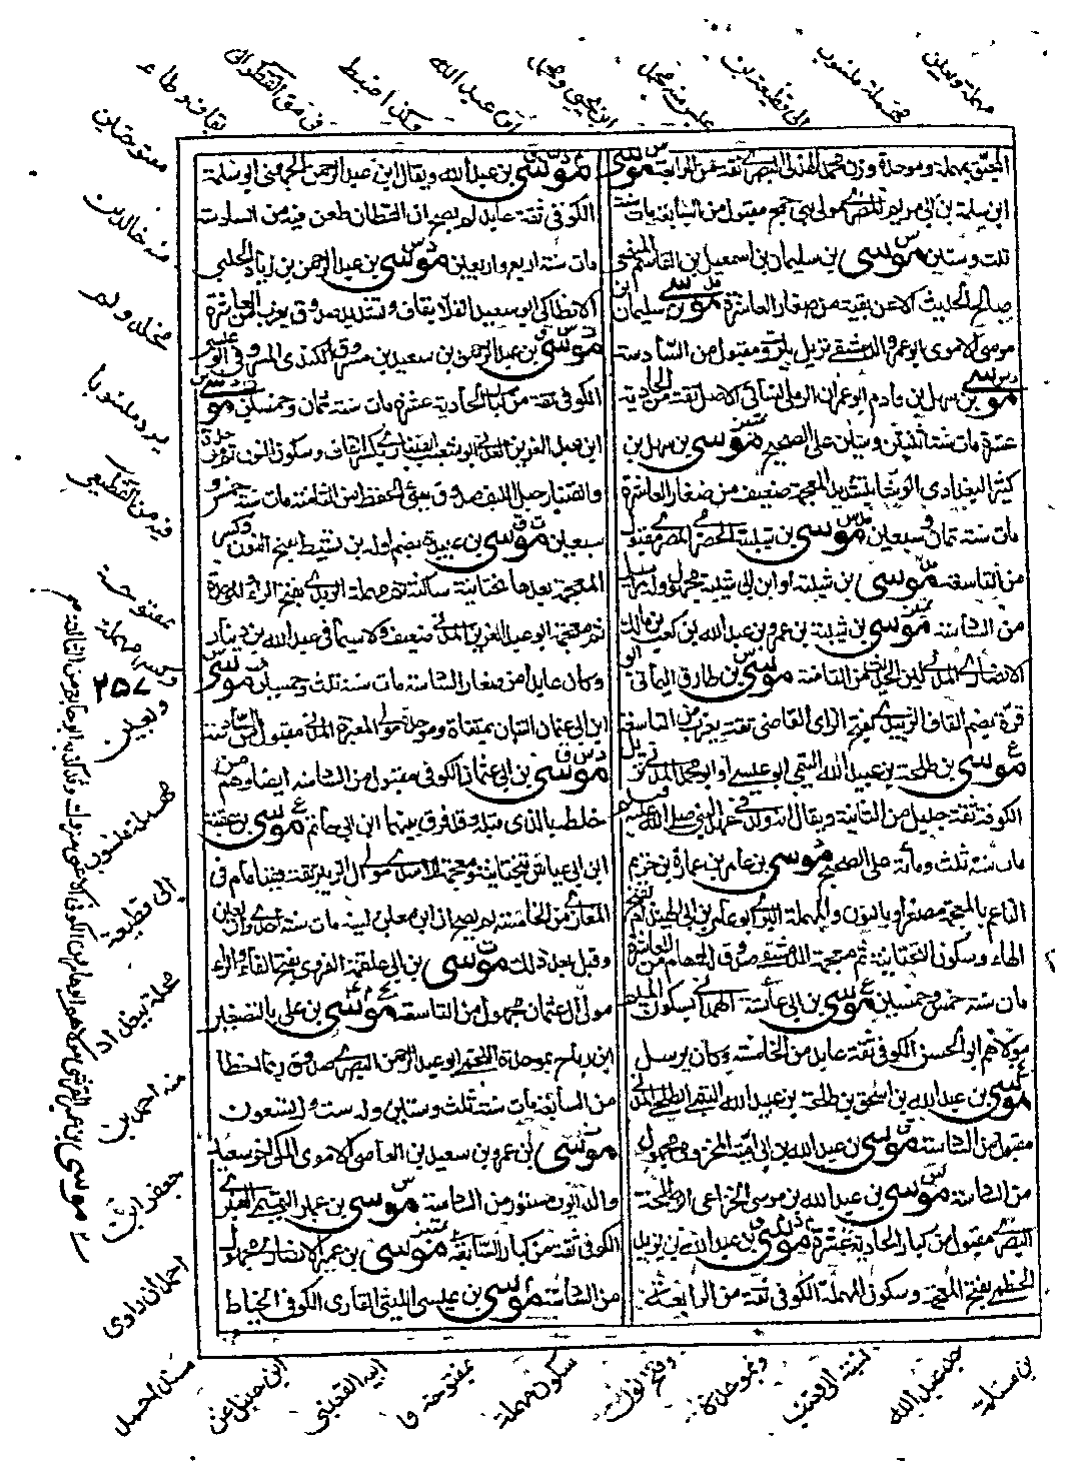 المحبق بمهملة وموحدة وزن محمد الهذلي البصري ثقة من الرابعة موسى
ابن سلمة بن ابي مريم المصري مولى بني جمح مقبول من السابعة مات سنة
ثلث وستين موسى بن سليمان بن اسمعيل بن القاسم المنبجي
صالح الحديث الا عن بقية من صغار العاشرة موسى بن سليمان
موسى الاموي ابو عمرو الدمشقي نزيل بيروت مقبول من السادسة
موسى بن سهل بن قادم ابو عمران الرملي نسائي الاصل ثقة من الحادية
عشرة مات سنة اثنتين وستين على الصحيح موسى بن سهل بن
كثير البغدادي الوشا بتشديد المعجمة ضعيف من صغار العاشرة
مات سنة ثمان وسبعين موسى بن شيبة الحضرمي المصري مقبول
من التاسعة موسى بن شيبة او ابن ابي شيبة مجهول
من الثامنة موسى بن شيبة بن عمرو بن عبد الله بن كعب بن مالك
الانصاري المدني لين الحديث من الثامنة موسى بن طارق اليماني ابو
قرة بضم القاف الزبيدي بفتح الزاي القاضي ثقة يغرب من التاسعة
موسى بن طلحة بن عبيد الله التيمي ابو عيسى او ابو محمد المدني نزيل
الكوفة ثقة جليل من الثانية ويقال انه ولد في عهد النبي صلى الله عليه
مات سنة ثلث ومائة على الصحيح موسى بن عامر بن عمارة بن خريم
الناعم بالمعجمة مصغرا وبالنون والمهملة المري ابو عامر بن ابي الهيذام بفتح
الهاء وسكون التحتانية ثم معجمة الدمشقي صدوق له اوهام من العاشرة
مات سنة خمس وخمسين موسى بن ابي عائشة الهمداني بسكون الميم
مولاهم ابو الحسن الكوفي ثقة عابد من الخامسة وكان يرسل
موسى بن عبد الله بن اسحق بن طلحة بن عبيد الله التيمي الطلحي المدني
مقبول من الثامنة موسى بن عبد الله بن ابي امية المخزومي مجهول
من الثامنة موسى بن عبد الله بن موسى الخزاعي ابو طلحة
البصري مقبول من كبار الحادية عشرة موسى بن عبد الله بن يزيد
الخطمي بفتح المعجمة وسكون المهملة الكوفي ثقة من الرابعة
موسى بن عبد الله ويقال ابن عبد الرحمن الجهني ابو سلمة
الكوفي ثقة عابد لم يصح ان القطان طعن فيه من السادسة
مات سنة اربع واربعين موسى بن عبد الرحمن بن زياد الحلبي
الانطاكي ابو سعيد القلا بقاف وتشديد صدوق يغرب من العاشرة
موسى بن عبد الرحمن بن سعيد بن مسروق الكندي المسروقي ابو عيسى
الكوفي ثقة من كبار الحادية عشرة مات سنة ثمان وخمسين موسى
ابن عبد العزيز العدني ابو شعيب القنباري بكسر القاف وسكون النون ثم
والقنبار حبل الليف صدوق سيئ الحفظ من الثامنة مات سنة خمس و
سبعين موسى بن عبيدة بضم اوله بن نشيط بفتح النون وكسر
المعجمة بعدها تحتانية ساكنة ثم مهملة الربذي بفتح الراء والموحدة
ثم معجمة ابو عبد العزيز المدني ضعيف ولا سيما في عبد الله بن دينار
وكان عابدا من صغار السادسة مات سنة ثلث وخمسين موسى
ابن ابي عثمان التبان بمثناة وموحدة مولى المغيرة المدني مقبول من السادسة
موسى بن ابي عثمان الكوفي مقبول من السادسة ايضا وهم من
خلطه بالذي قبله وقد فرق بينهما ابن ابي حاتم موسى بن عقبة
ابن ابي عياش بتحتانية ومعجمة الاسدي مولى ال الزبير ثقة فقيه امام في
المغازي من الخامسة لم يصح ان ابن معين لينه مات سنة احدى واربعين
وقيل بعد ذلك موسى بن ابي علقمة الفروي بفتح الفاء والراء
مولى ال عثمان مجهول من التاسعة موسى بن علي بالتصغير
ابن رباح بموحدة اللخمي ابو عبد الرحمن المصري صدوق ربما اخطا
من السابعة مات سنة ثلث وستين وله ست وتسعون
موسى بن عمرو بن سعيد بن العاصي الاموي المكي اخو سعيد
والد ايوب مستور من السادسة موسى بن عمير التميمي العنبري
الكوفي ثقة من كبار السابعة موسى بن عمير الانصاري مجهول
من الثامنة موسى بن عيسى الليثي القاري الكوفي الخياط
٢٥٧
مهملة وبعين
مهملة منسوب
الى قطيعة بن
ابن يحيى
ابن عبد الله
وكذا ضبط
بقاف وطاء
مفتوحتين
منه خالد بن
مخلد ولم
يرد منسوبا
مفتوحة
وبعين
مهملة منسوب
الى قطيعة
محلة ببغداد
منه احمد بن
جعفر
احمد ان داوى
مسند احمد
ابن حنبل عن
ابيه القعيني
بمفتوحة و
سكون مهملة
وفتح نون
وبموحدة
نسبة الى قعنب
جد عبد الله
بن مسلمة